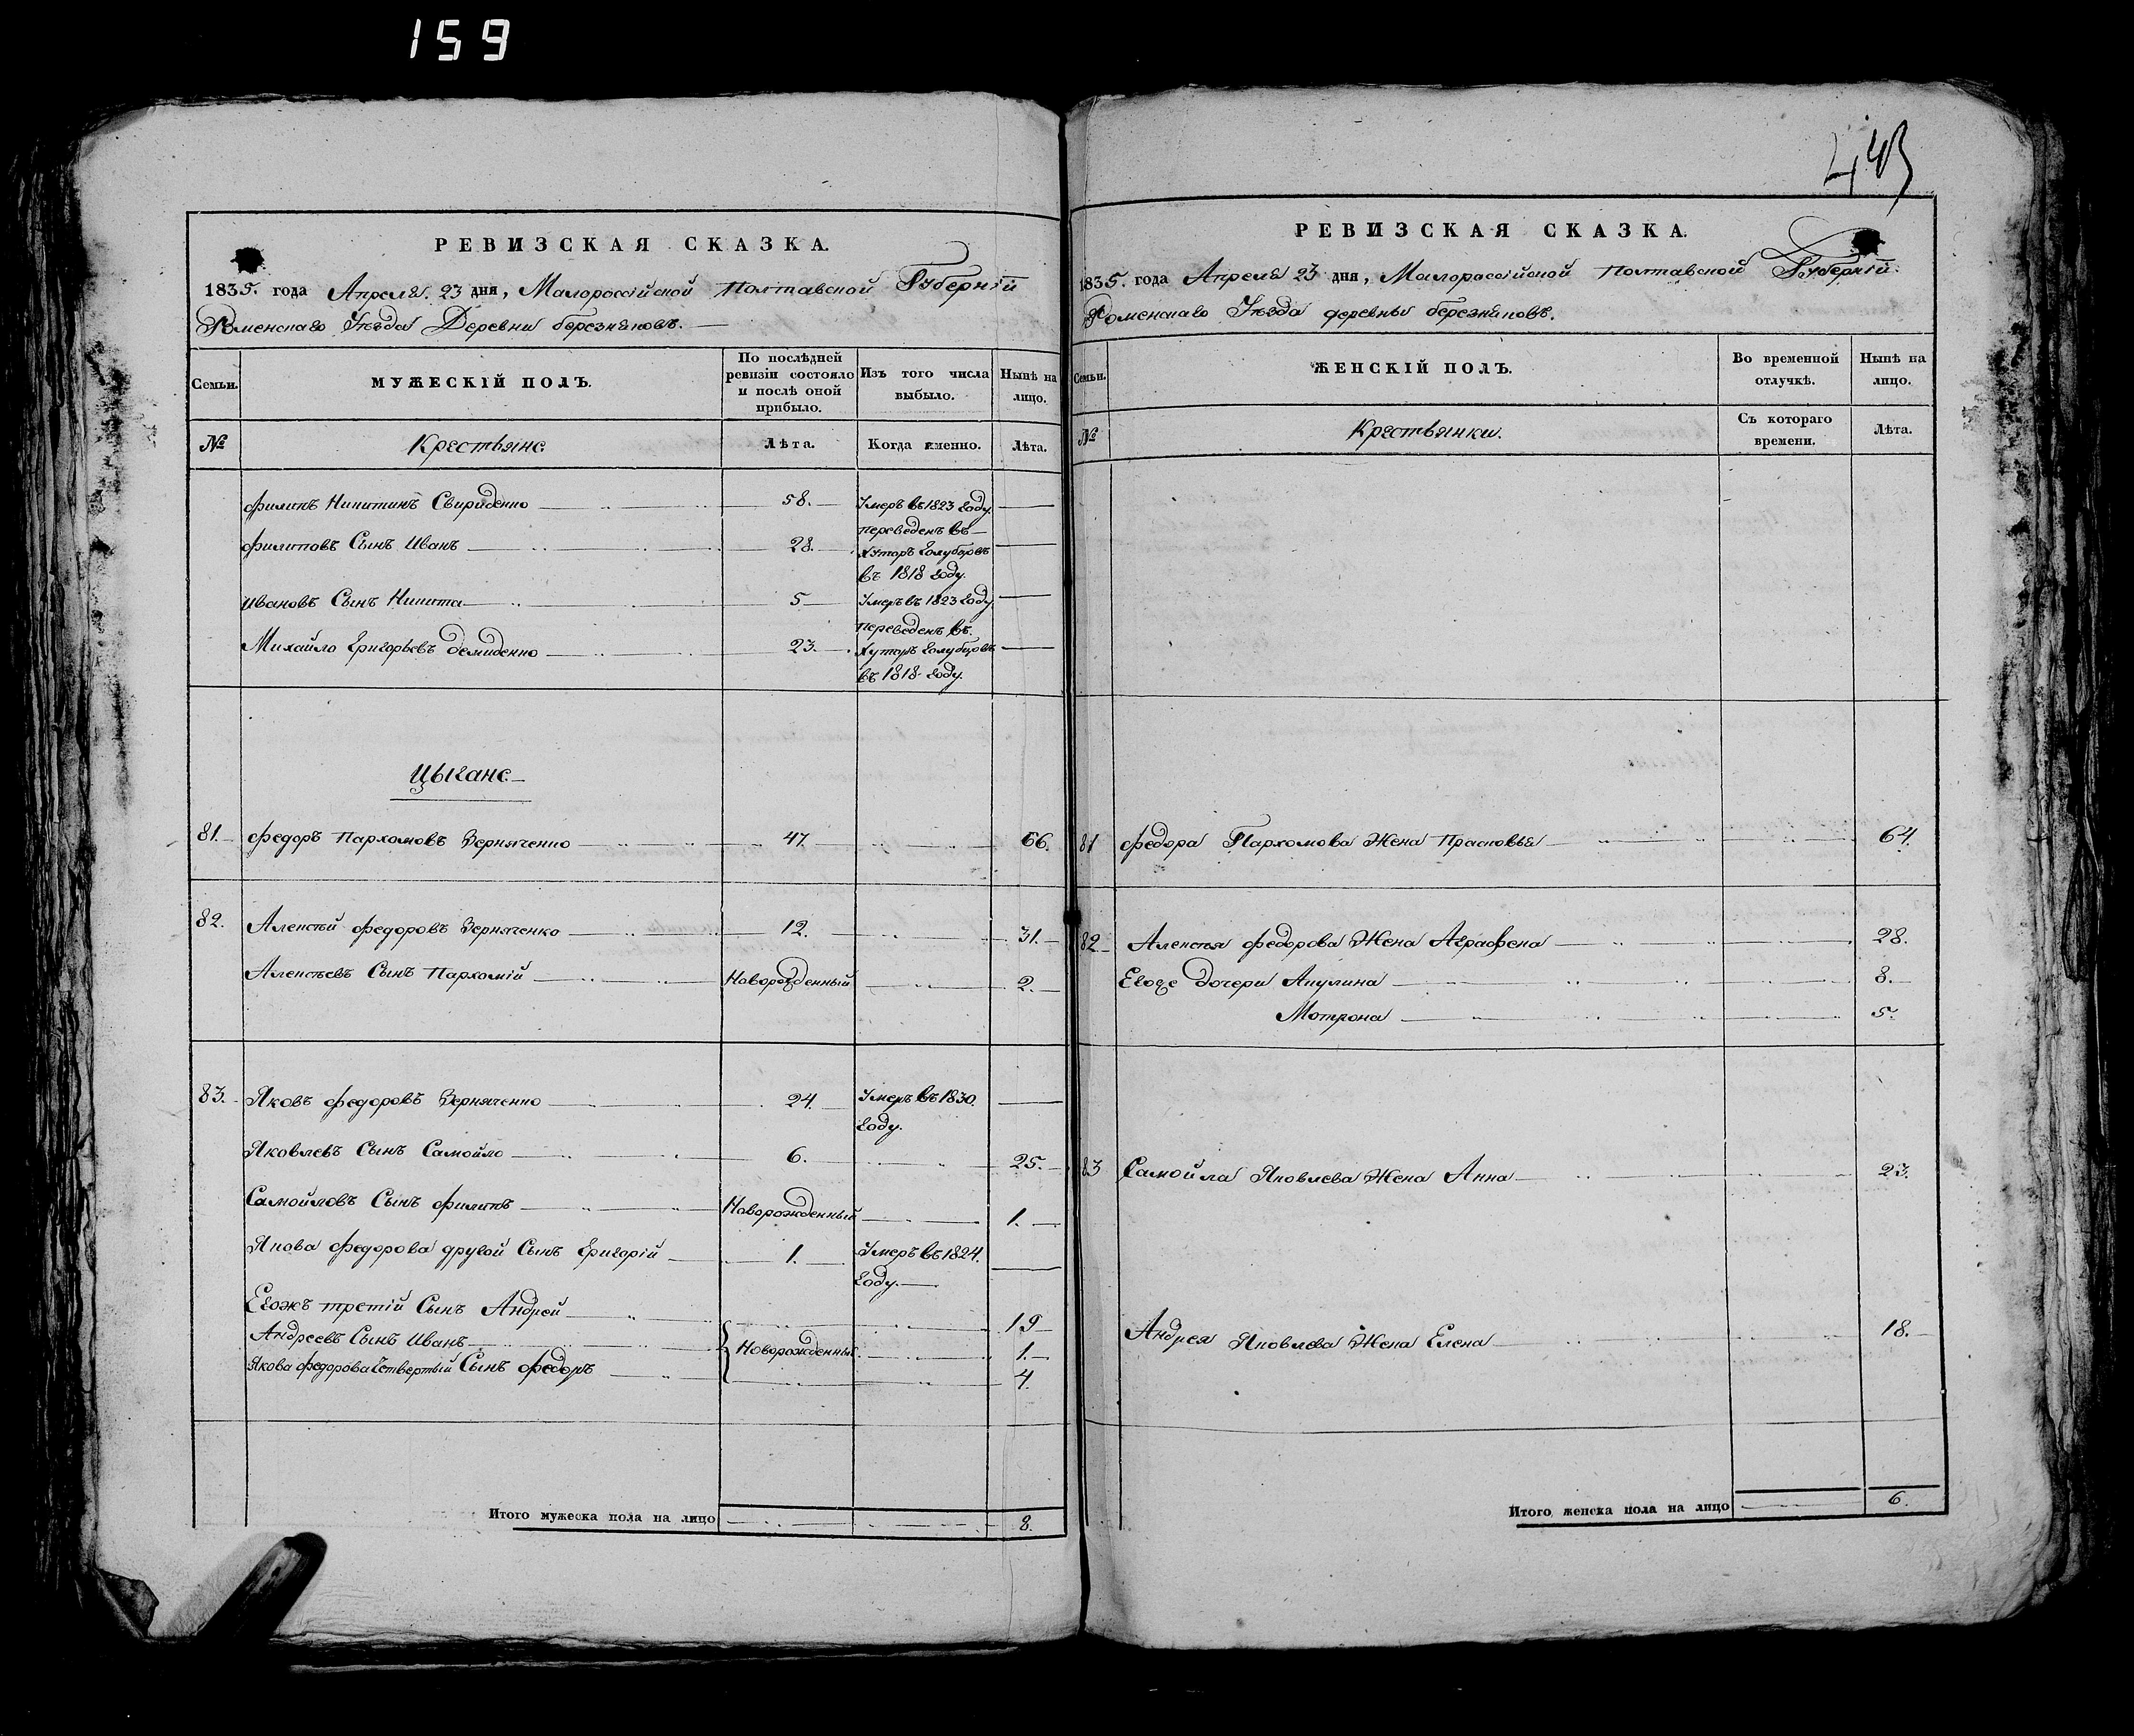 159
443
РЕВИЗСКАЯ СКАЗКА.
1835. года Апреля. 23 дня, Малороссійской Полтавской Губерніи
Роменскаго Уѣзда Деревни березняковъ.
Семьи.
МУЖЕСКІЙ ПОЛЪ.
По послѣдней ревизіи состояло и послѣ оной прибыло.
Изъ того числа выбыло.
Нынѣ на лицо.
№
Крестьяне
Лѣта.
Когда именно.
Лѣта.
Филипъ Никитинъ Свириденко 58. Умеръ въ 1823 году.
Филиповъ Сынъ Иванъ 28. переведенъ въ хуторъ Голубцовъ въ 1818 году.
Ивановъ Сынъ Никита 5 Умеръ въ 1823 году.
Михайло Григорьевъ демиденко 23. переведенъ въ хуторъ Голубцовъ въ 1818 году.
Цыгане
81. Федоръ Пархомовъ Зерняченко 47. 66.
82. Алексѣй Федоровъ Зерняченко 12. 31.
Алексѣевъ Сынъ Пархомій Новорожденный 2.
83. Яковъ Федоровъ Зерняченко 24. Умеръ въ 1830. году.
Яковлевъ Сынъ Самойло 6. 25.
Самойловъ Сынъ Филипъ Новорожденный 1.
Якова Федорова другой Сынъ Григорій 1. Умеръ въ 1824. году.
Егожъ третій Сынъ Андрей 19
Андреевъ Сынъ Иванъ Новорожденные 1.
Якова Федорова Четвертый Сынъ Федоръ 4.
Итого мужеска пола на лицо 8.
РЕВИЗСКАЯ СКАЗКА.
1835. года Апреля 23 дня, Малороссійской Полтавской Губерніи.
Роменскаго Уѣзда деревны березняковъ.
Семьи.
ЖЕНСКІЙ ПОЛЪ.
Во временной отлучкѣ.
Нынѣ на лицо.
№
Крестьянки.
Съ котораго времени.
Лѣта.
81 Федора Пархомова Жена Прасковья 64.
82 Алексѣя Федорова Жена Аграфена 28.
Егоже дочери Акулина 8.
Мотрона 5.
83 Самойла Яковлева Жена Анна 23.
Андрея Яковлева Жена Елена 18.
Итого женска пола на лицо 6.